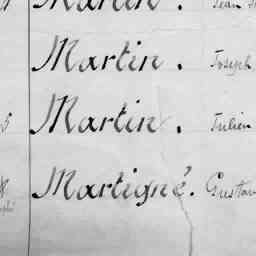 Martin. Jean
Martin. Joseph
5 Martin. Julien
Martigné. Gustav